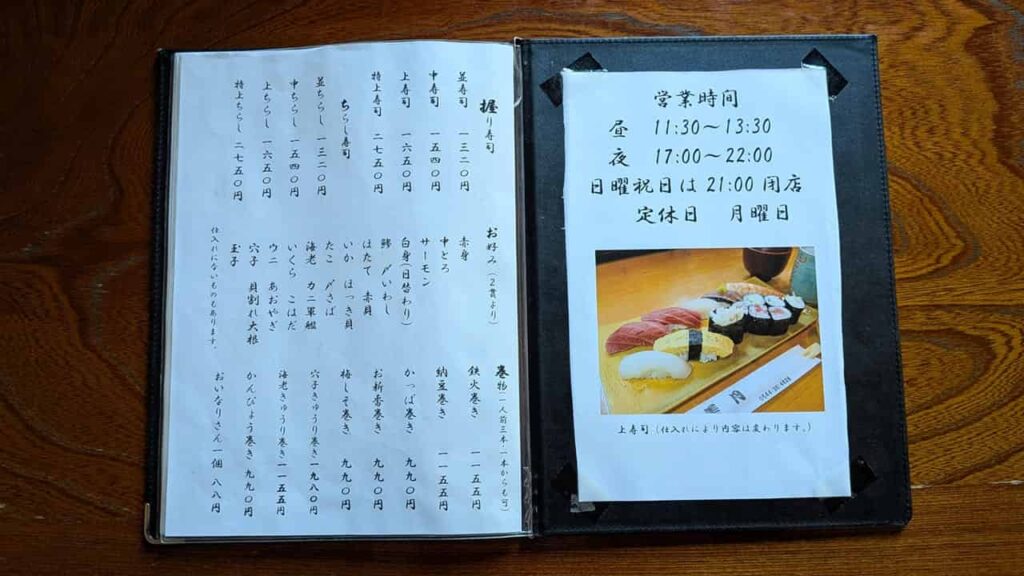 握り寿司
並寿司 一三二〇円
中寿司 一五四〇円
上寿司 一六五〇円
特上寿司 二七五〇円
ちらし寿司
並ちらし 一三二〇円
中ちらし 一五四〇円
上ちらし 一六五〇円
特上ちらし 二七五〇円
お好み(2貫より)
赤身
中とろ
サーモン
白身(日替わり)
鯵 〆いわし
ほたて 赤貝
いか ほっき貝
たこ 〆さば
海老 カニ軍艦
いくら こはだ
ウニ あおやぎ
穴子 貝割れ大根
玉子
仕入れにないものもあります。
巻物(一人前三本 一本からも可)
鉄火巻き 一一五五円
納豆巻き 一一五五円
かっぱ巻き 九九〇円
お新香巻き 九九〇円
梅しそ巻き 九九〇円
穴子きゅうり巻き 一九八〇円
海老きゅうり巻き 一一五五円
かんぴょう巻き 九九〇円
おいなりさん 一個 八八円
営業時間
昼 11:30～13:30
夜 17:00～22:00
日曜祝日は21:00閉店
定休日 月曜日
上寿司(仕入れにより内容は変わります。)